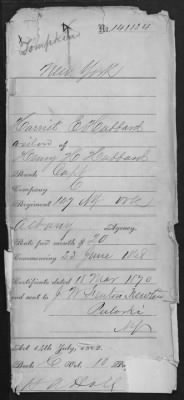 Tompkins
No. 141134
New York
Harriet E. Hubbard
widow of
Henry H. Hubbard
Rank Capt
Company C
Regiment 107 NY Vols
Albany Agency.
Rate per month $20
Commencing 22 June 1868
Certificate dated 18 Mar 1870
and sent to J. W.
Pulaski
NY
Act 14th July, 1862.
Book C Vol. 10 P.